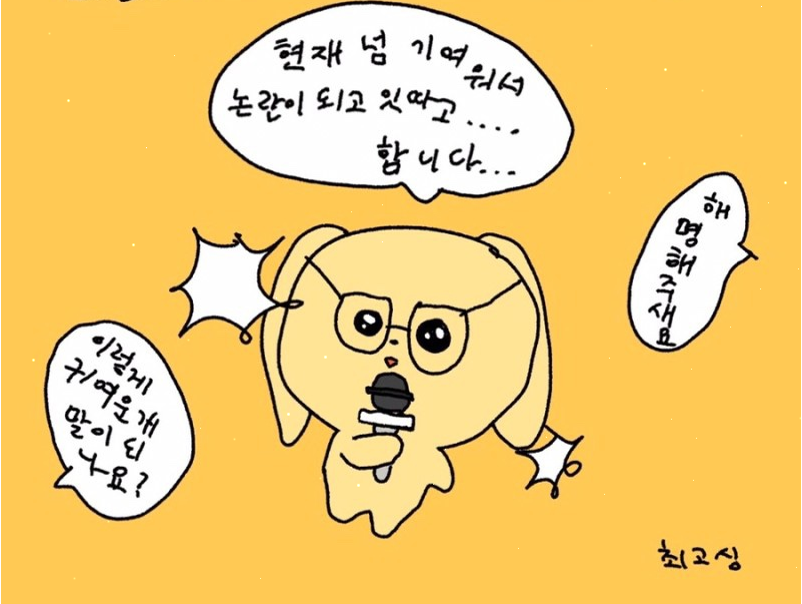 현재 넘 기여워서
논란이 되고 잇따고....
합니다...
해
명
해
주
새
요
이렇게
귀여운개
말이 되
나요?
최고심